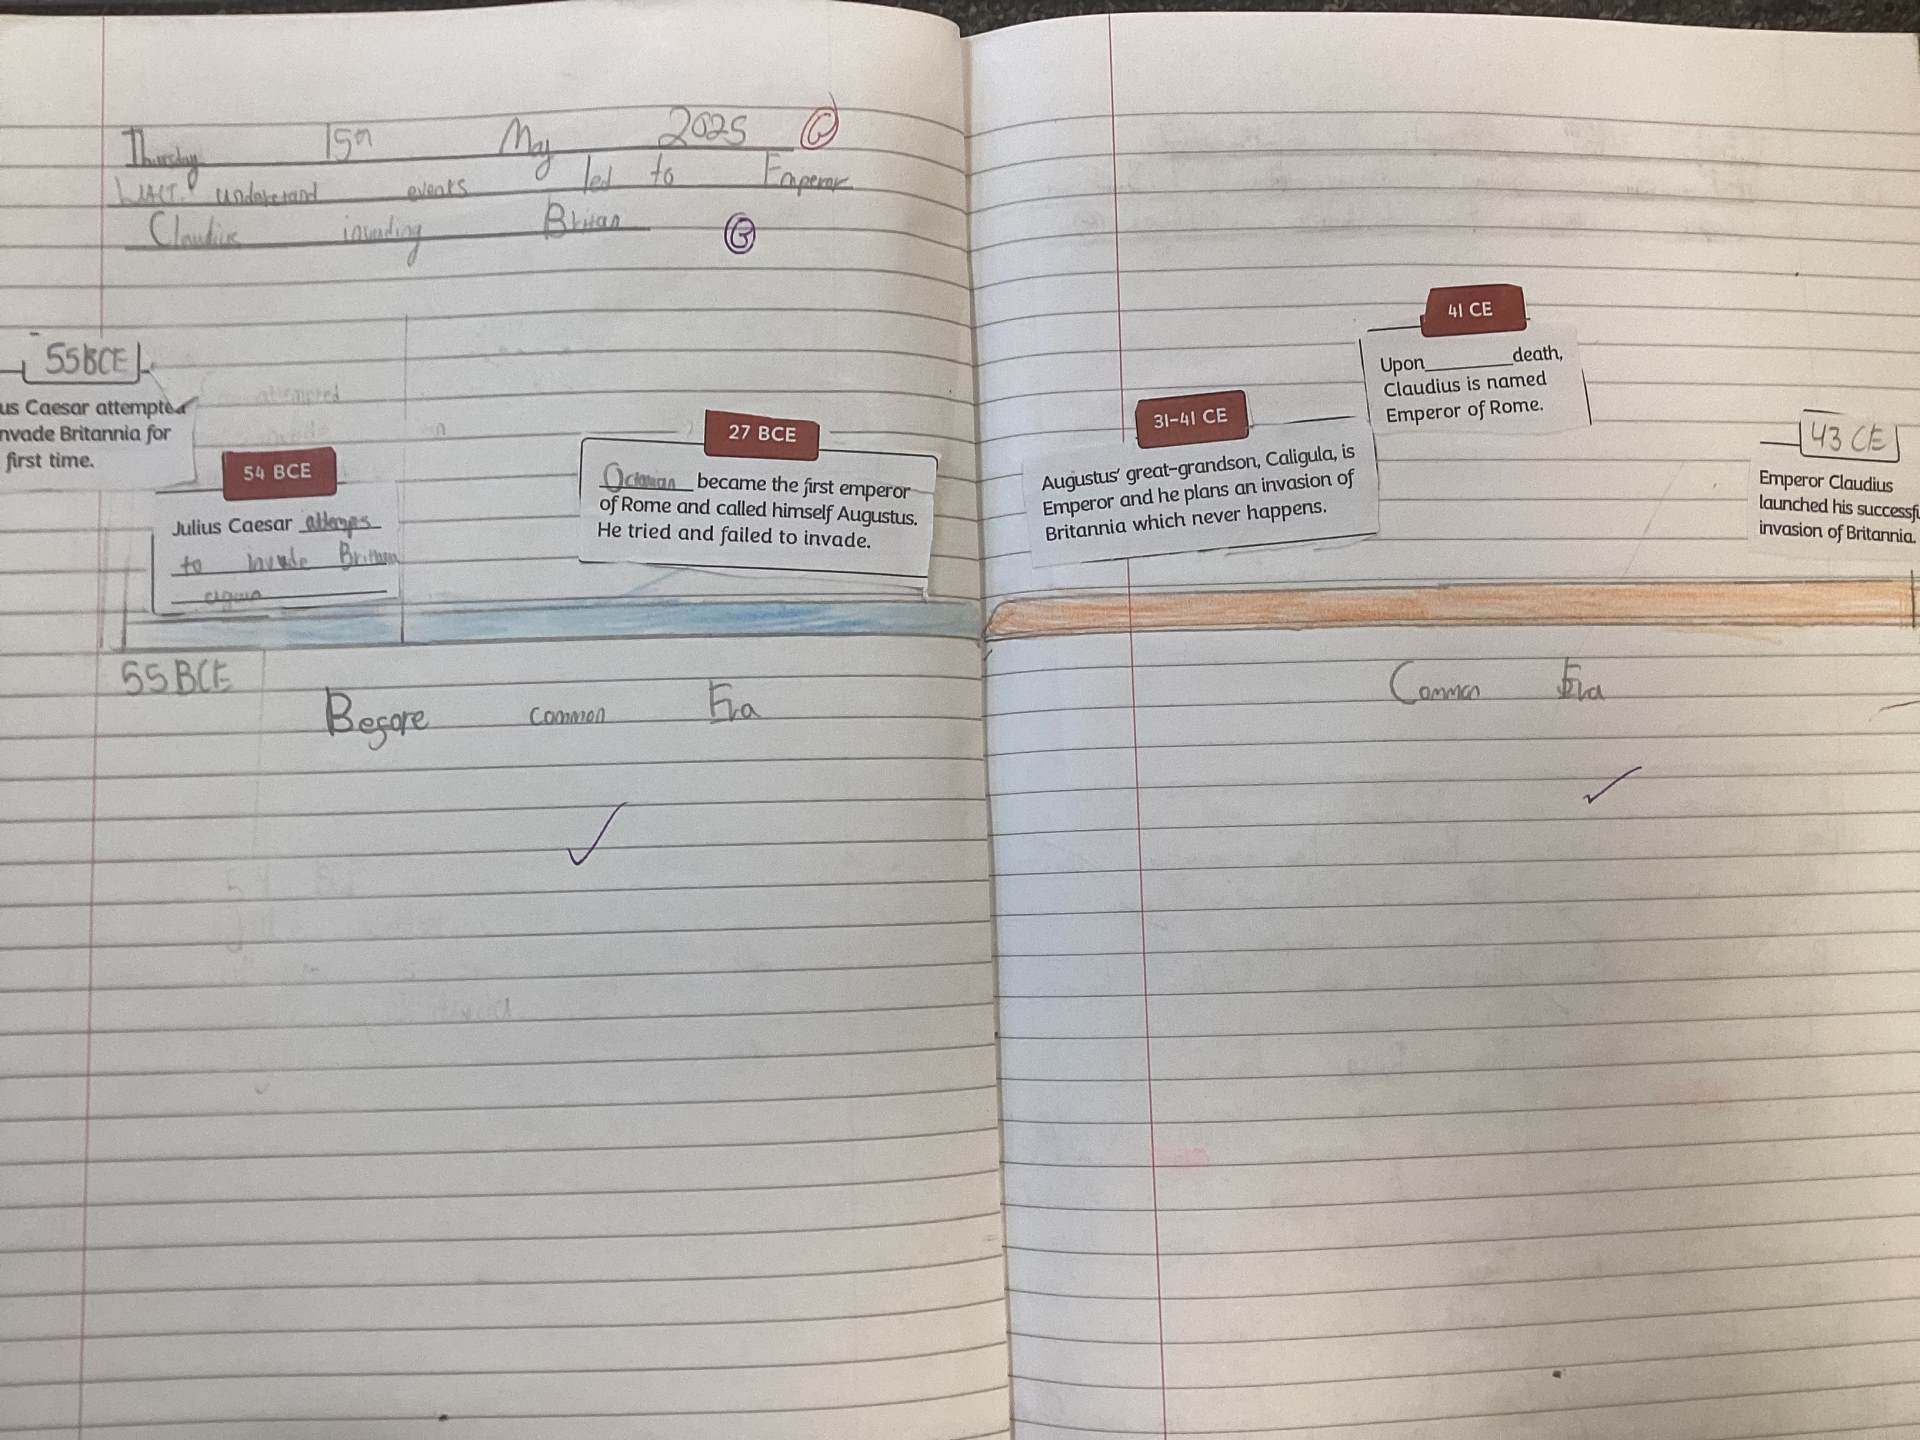 Thursday 15th May 2025
WACT: understand events led to Emperor
Claudius invading Britan
55BCE
us Caesar attempted
nvade Britannia for
first time.
54 BCE
Julius Caesar attemps
to invade
again
27 BCE
became the first emperor
of Rome and called himself Augustus.
He tried and failed to invade.
31–41 CE
Augustus' great-grandson, Caligula, is
Emperor and he plans an invasion of
Britannia which never happens.
41 CE
Upon________death,
Claudius is named
Emperor of Rome.
43 CE
Emperor Claudius
launched his successfu
invasion of Britannia.
55BCE
Before common Era
Common Era